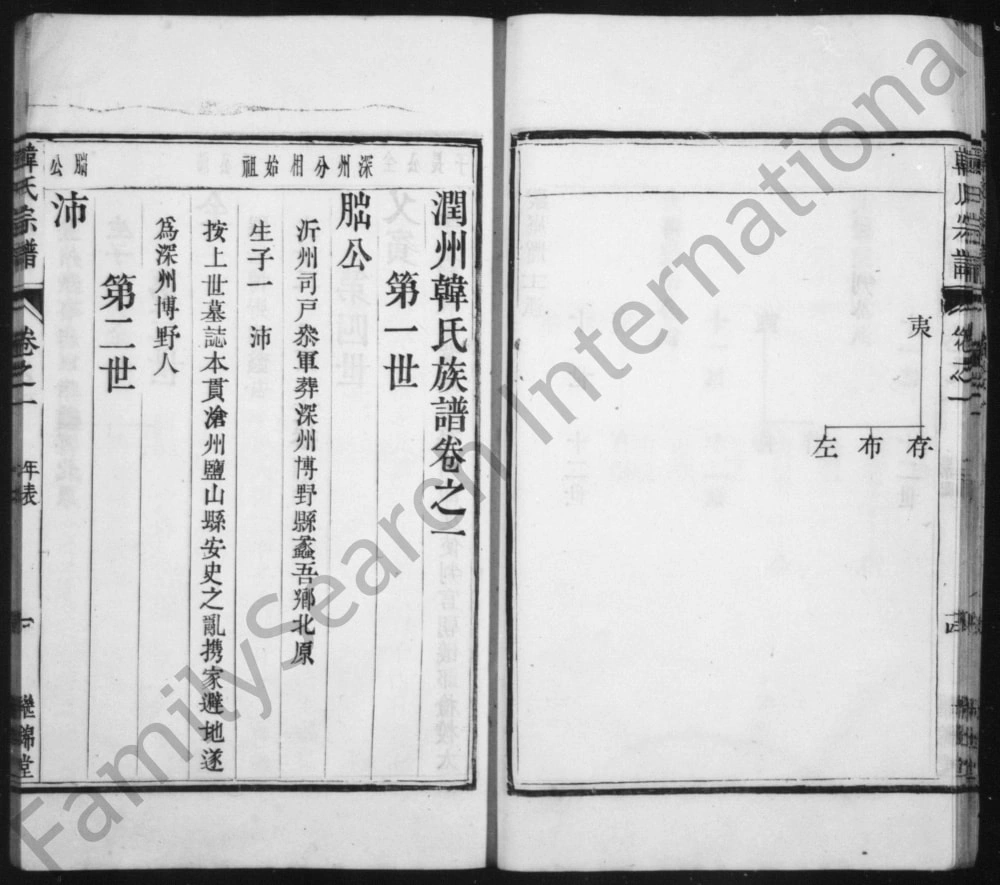 夷
存
布
左
潤州韓氏族譜卷之一
第一世
深州分相始祖
朏公
沂州司戸叅軍葬深州博野縣蠡吾鄉北原
生子一 沛
按上世墓誌本貫滄州鹽山縣安史之亂携家避地遂
爲深州博野人
第二世
沛
韓氏宗譜 卷之一 年表 一 晝錦堂
FamilySearch International